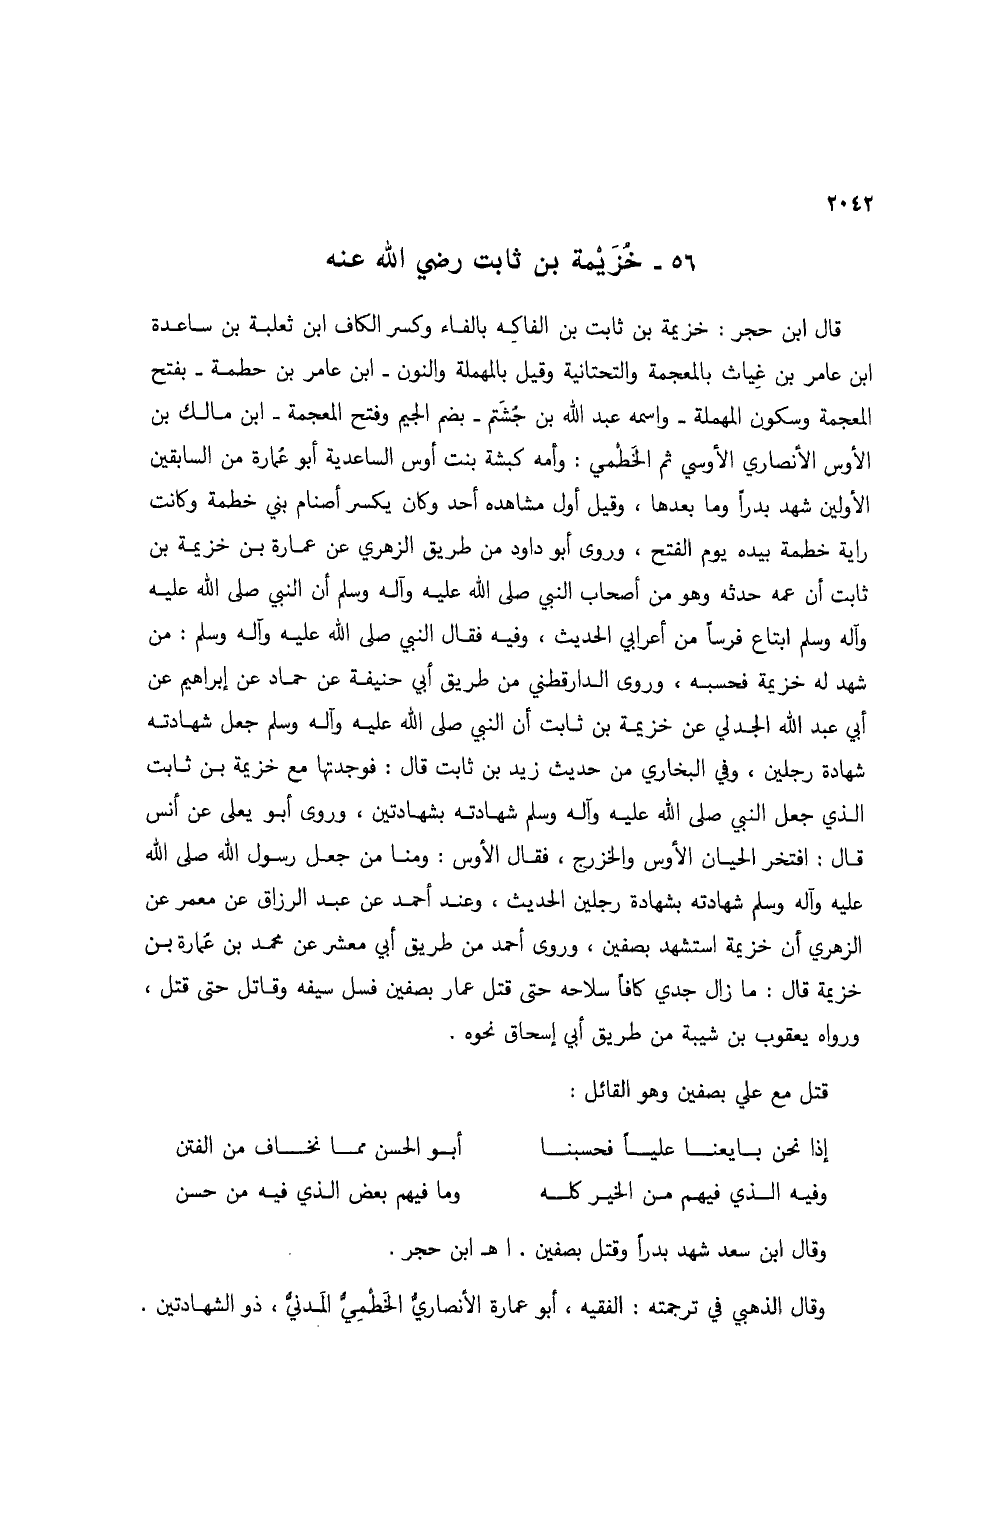 ٢٠٤٢
٥٦ - خُزَيْمة بن ثابت رضي الله عنه
قال ابن حجر : خزيمة بن ثابت بن الفاكه بالفاء وكسر الكاف ابن ثعلبة بن ساعدة
ابن عامر بن غياث بالمعجمة والتحتانية وقيل بالمهملة والنون - ابن عامر بن حطمة - بفتح
المعجمة وسكون المهملة - واسمه عبد الله بن جُشَم - بضم الجيم وفتح المعجمة - ابن مالك بن
الأوس الأنصاري الأوسي ثم الخَطْمي : وأمه كبشة بنت أوس الساعدية أبو عُمارة من السابقين
الأولين شهد بدراً وما بعدها ، وقيل أول مشاهده أحد وكان يكسر أصنام بني خطمة وكانت
راية خطمة بيده يوم الفتح ، وروى أبو داود من طريق الزهري عن عمارة بن خزيمة بن
ثابت أن عمه حدثه وهو من أصحاب النبي صلى الله عليه وآله وسلم أن النبي صلى الله عليه
وآله وسلم ابتاع فرساً من أعرابي الحديث ، وفيه فقال النبي صلى الله عليه وآله وسلم : من
شهد له خزيمة فحسبه ، وروى الدارقطني من طريق أبي حنيفة عن حماد عن إبراهيم عن
أبي عبد الله الجدلي عن خزيمة بن ثابت أن النبي صلى الله عليه وآله وسلم جعل شهادته
شهادة رجلين ، وفي البخاري من حديث زيد بن ثابت قال : فوجدتها مع خزيمة بن ثابت
الذي جعل النبي صلى الله عليه وآله وسلم شهادته بشهادتين ، وروى أبو يعلى عن أنس
قال : افتخر الحيان الأوس والخزرج ، فقال الأوس : ومنا من جعل رسول الله صلى الله
عليه وآله وسلم شهادته بشهادة رجلين الحديث ، وعند أحمد عن عبد الرزاق عن معمر عن
الزهري أن خزيمة استشهد بصفين ، وروى أحمد من طريق أبي معشر عن محمد بن عُمارة بن
خزيمة قال : ما زال جدي كافاً سلاحه حتى قتل عمار بصفين فسل سيفه وقاتل حتى قتل ،
ورواه يعقوب بن شيبة من طريق أبي إسحاق نحوه .
قتل مع علي بصفين وهو القائل :
إذا نحن بايعنا علياً فحسبنا أبو الحسن مما نخاف من الفتن
وفيه الذي فيهم من الخير كله وما فيهم بعض الذي فيه من حسن
وقال ابن سعد شهد بدراً وقتل بصفين . ا هـ ابن حجر .
وقال الذهبي في ترجمته : الفقيه ، أبو عمارة الأنصاريُّ الخَطْمِيُّ المَدنيُّ ، ذو الشهادتين .